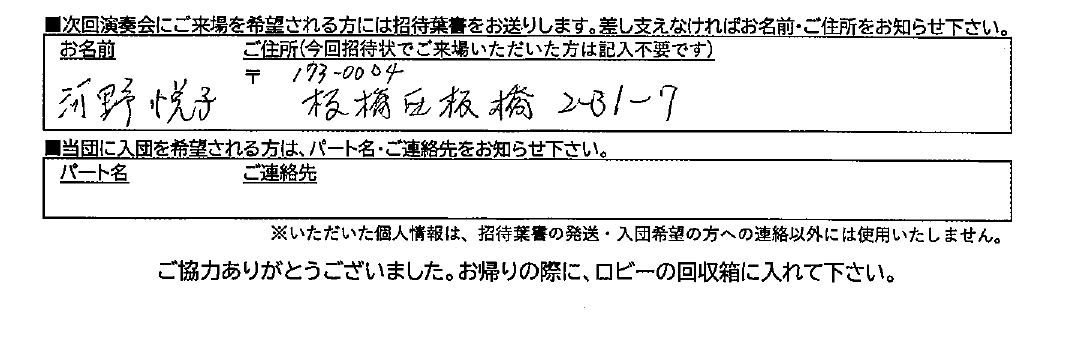 ■次回演奏会にご来場を希望される方には招待葉書をお送りします。差し支えなければお名前・ご住所をお知らせ下さい。
お名前 ご住所(今回招待状でご来場いただいた方は記入不要です)
〒 173-0004
河野 悦子 板橋区板橋 2-31-7
■当団に入団を希望される方は、パート名・ご連絡先をお知らせ下さい。
パート名 ご連絡先
※いただいた個人情報は、招待葉書の発送・入団希望の方への連絡以外には使用いたしません。
ご協力ありがとうございました。お帰りの際に、ロビーの回収箱に入れて下さい。